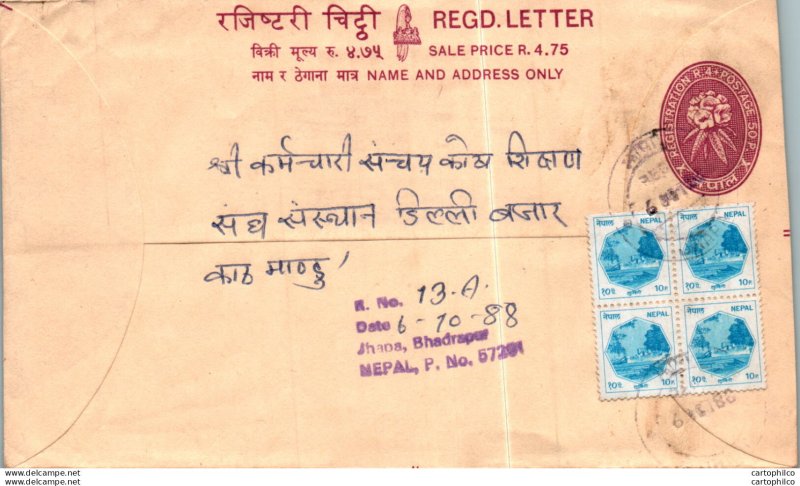 रजिष्टरी चिट्ठी REGD. LETTER
बिक्री मूल्य रु. ४.७५ SALE PRICE R. 4.75
नाम र ठेगाना मात्र NAME AND ADDRESS ONLY
REGISTRATION R.4 + POSTAGE 50 P.
नेपाल
श्री कर्मचारी संचय कोष शिक्षण
संघ संस्थान डिल्ली बजार
काठमाण्डु
R. No. 13-A.
Date 6-10-88
Jhapa, Bhadrapur
NEPAL, P. No. 57201
नेपाल NEPAL
१०पै. 10P.
लुम्बिनी
नेपाल NEPAL
१०पै. 10P.
लुम्बिनी
नेपाल NEPAL
१०पै. 10P.
लुम्बिनी
नेपाल NEPAL
१०पै. 10P.
लुम्बिनी
cartophilco.com
cartophilco
cartophilco.com
cartophilco